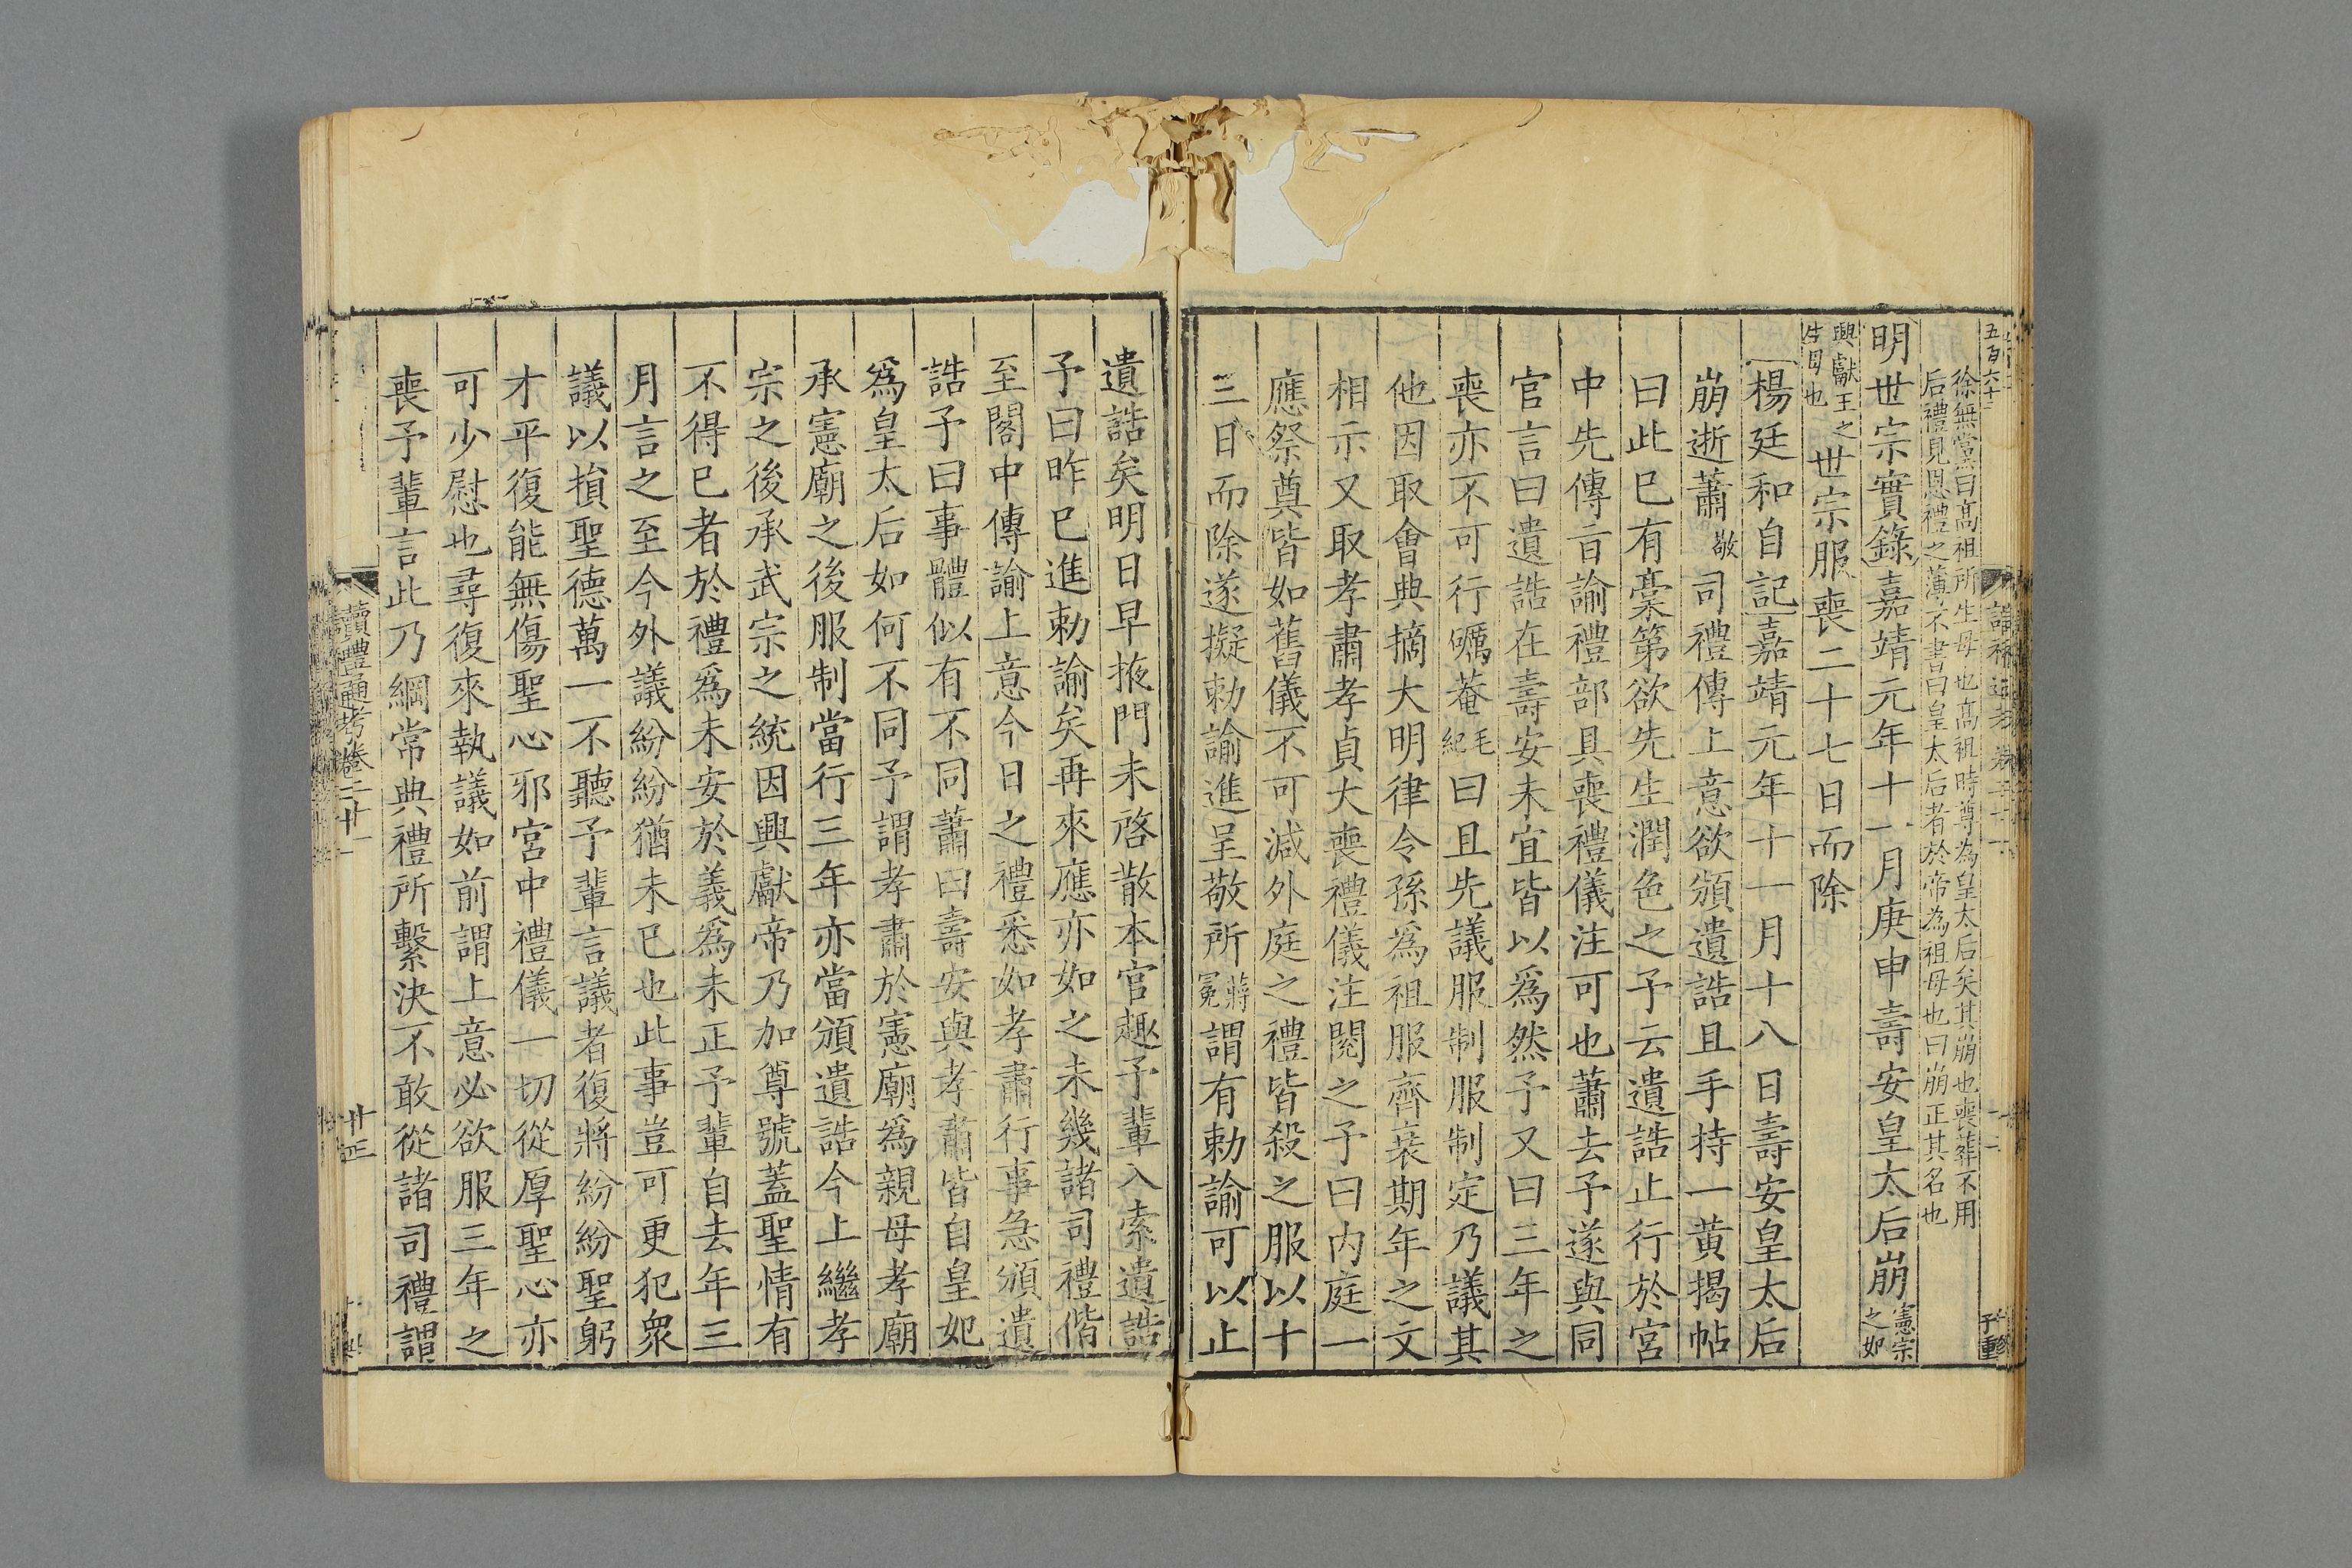 五百六十三
徐無黨曰高祖所生母也高祖時尊為皇太后矣其崩也喪葬不用
后禮見恩禮之薄不書曰皇太后者於帝為祖母也曰崩正其名也
明世宗實錄嘉靖元年十一月庚申壽安皇太后崩憲宗之妃
興獻王之生母也世宗服喪二十七日而除
楊廷和自記嘉靖元年十一月十八日壽安皇太后
崩逝蕭敬司禮傳上意欲頒遺誥且手持一黃揭帖
曰此已有藁第欲先生潤色之予云遺誥止行於宮
中先傳旨諭禮部具喪禮儀注可也蕭去予遂與同
官言曰遺誥在壽安未宜皆以爲然予又曰三年之
喪亦不可行礪菴毛紀曰且先議服制服制定乃議其
他因取會典摘大明律令孫爲祖服齊衰期年之文
相示又取孝肅孝貞大喪禮儀注閱之予曰內庭一
應祭奠皆如舊儀不可減外庭之禮皆殺之服以十
三日而除遂擬勅諭進呈敬所蔣冕謂有勅諭可以止
遺誥矣明日早掖門未啓散本官趣予輩入索遺誥
予曰昨已進勅諭矣再來應亦如之未幾諸司禮偕
至閣中傳諭上意今日之禮悉如孝肅行事急頒遺
誥予曰事體似有不同蕭曰壽安與孝肅皆自皇妃
爲皇太后如何不同予謂孝肅於憲廟爲親母孝廟
承憲廟之後服制當行三年亦當頒遺誥今上繼孝
宗之後承武宗之統因興獻帝乃加尊號蓋聖情有
不得已者於禮爲未安於義爲未正予輩自去年三
月言之至今外議紛紛猶未已也此事豈可更犯衆
議以損聖德萬一不聽予輩言議者復將紛紛聖躬
才平復能無傷聖心邪宮中禮儀一切從厚聖心亦
可少慰也尋復來執議如前謂上意必欲服三年之
喪予輩言此乃綱常典禮所繫決不敢從諸司禮謂
讀禮通考卷二十一